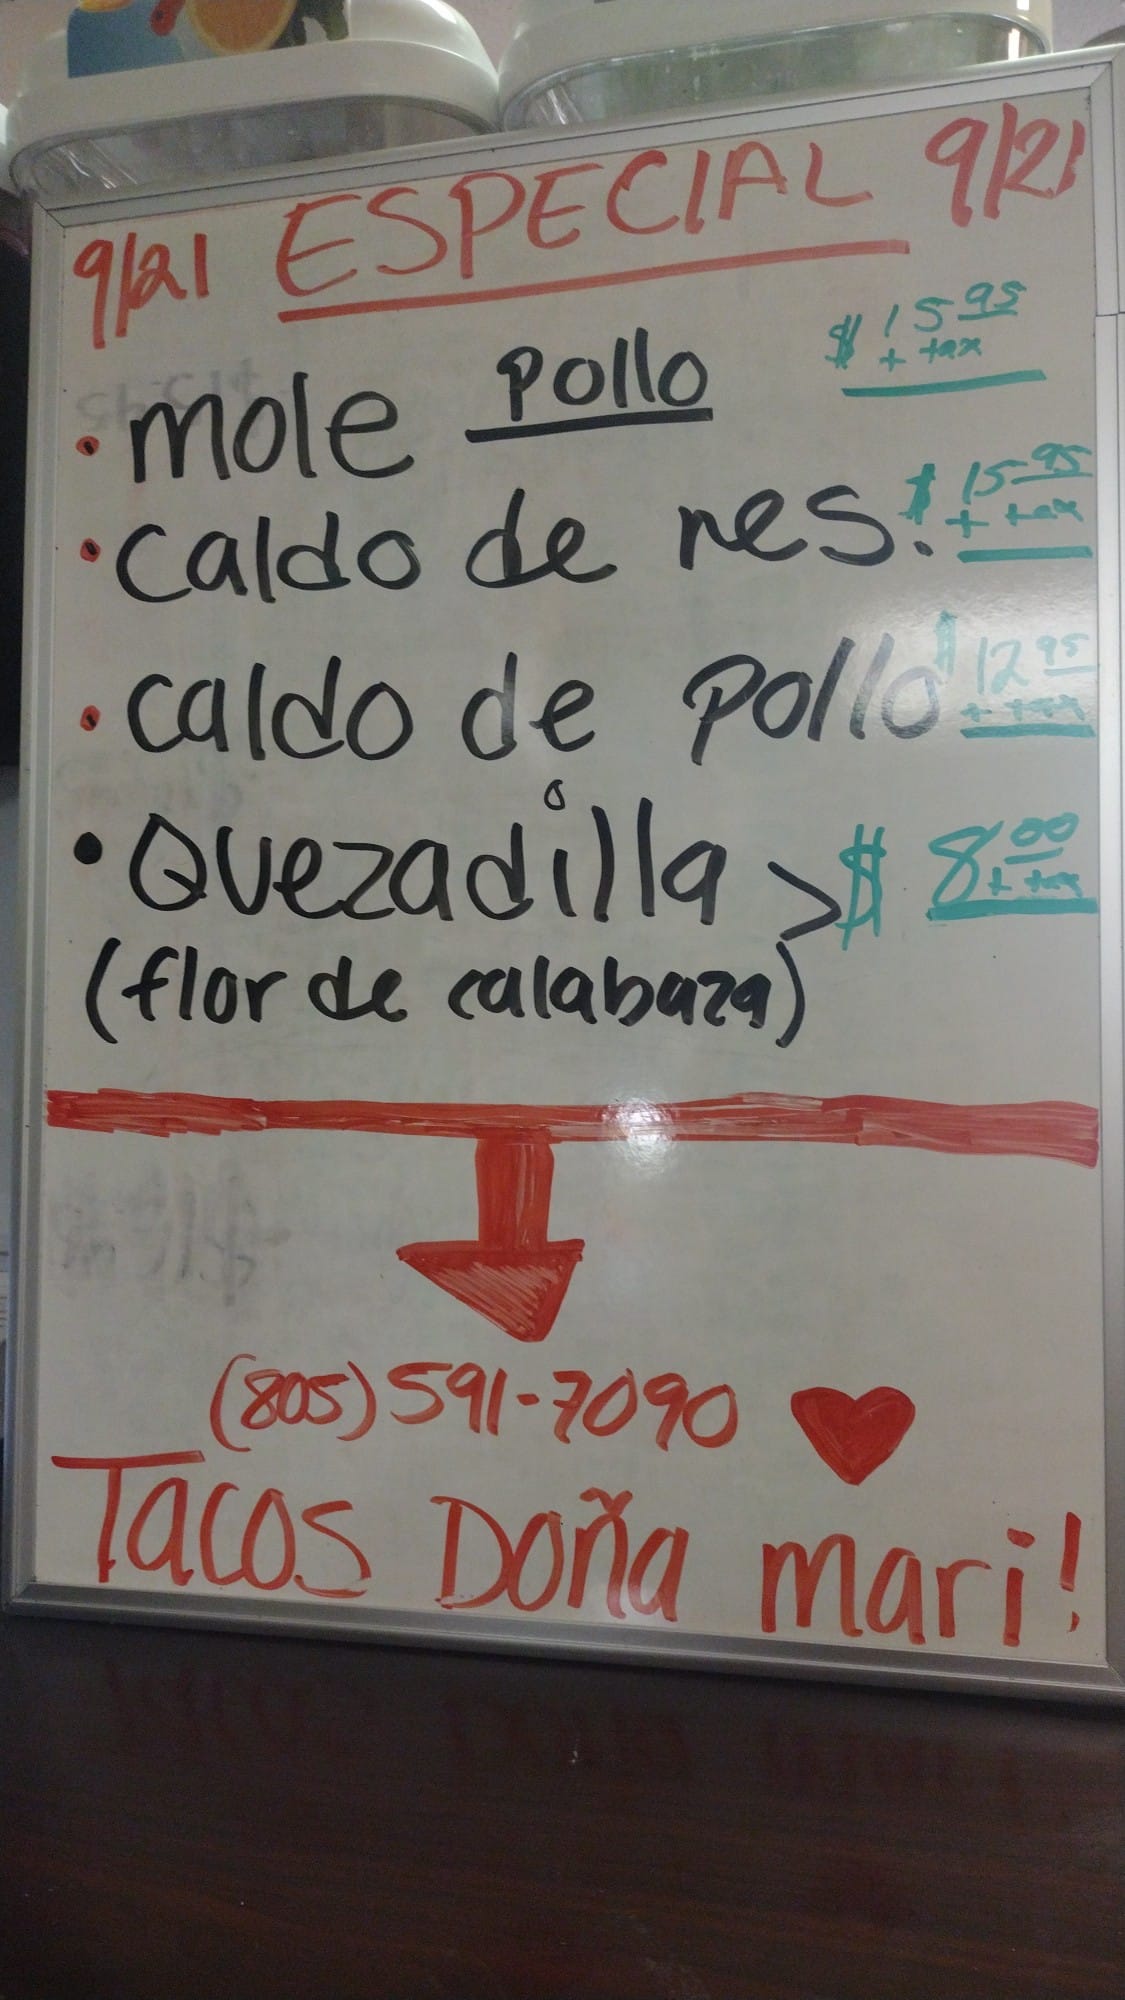 9/21 ESPECIAL 9/21
• mole pollo $15 95 + tax
• caldo de res. $15 95 + tax
• caldo de pollo $12 95 + tax
• Quezadilla > $8 00 + tax
(flor de calabaza)
(805) 591-7090
Tacos Doña mari!